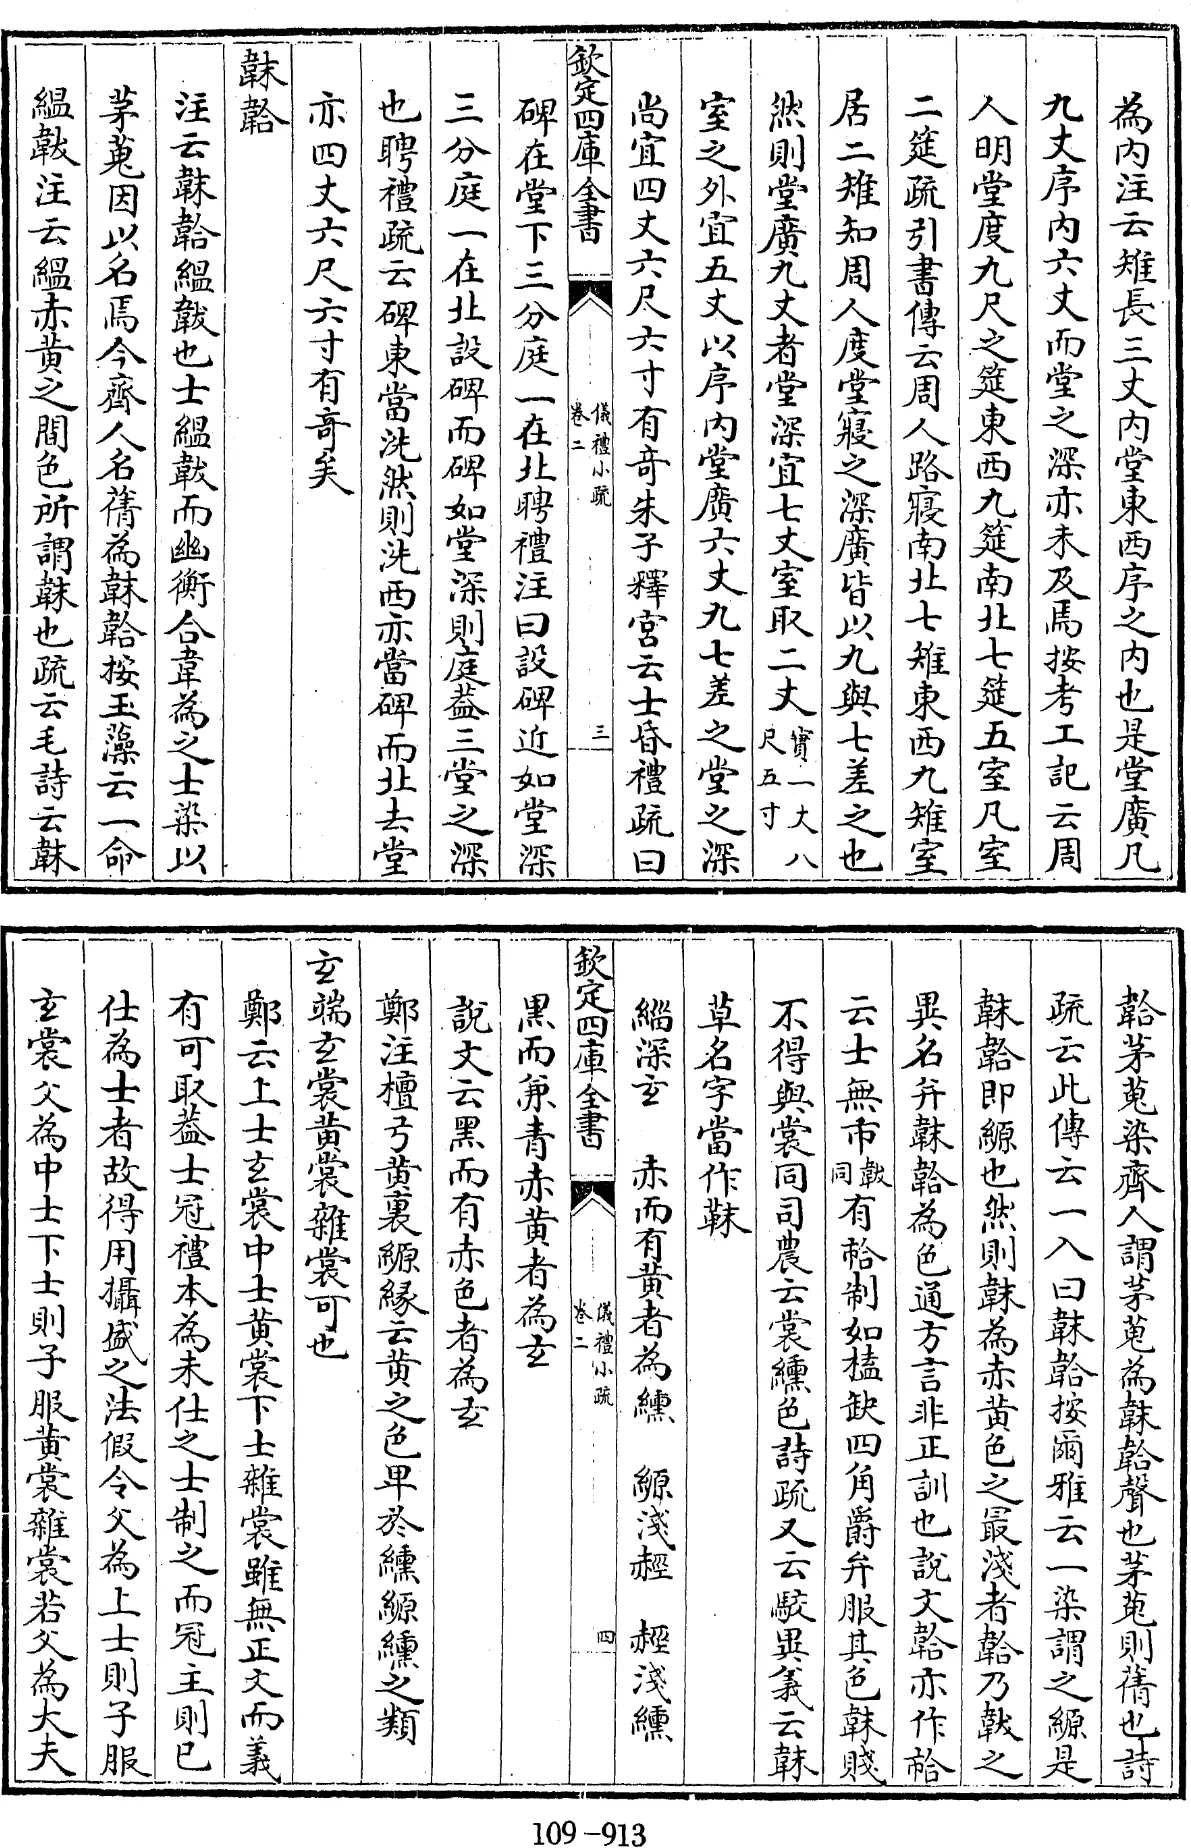 為内注云雉長三丈内堂東西序之内也是堂廣凡
九丈序内六丈而堂之深亦未及焉按考工記云周
人明堂度九尺之筵東西九筵南北七筵五室凡室
二筵疏引書傳云周人路寢南北七雉東西九雉室
居二雉知周人度堂寢之深廣皆以九與七差之也
然則堂廣九丈者堂深宜七丈室取二丈實一丈八尺五寸
室之外宜五丈以序内堂廣六丈九七差之堂之深
尚宜四丈六尺六寸有奇朱子釋宮云士昏禮疏曰
欽定四庫全書 儀禮小疏 卷二 三
碑在堂下三分庭一在北聘禮注曰設碑近如堂深
三分庭一在北設碑而碑如堂深則庭蓋三堂之深
也聘禮疏云碑東當洗然則洗西亦當碑而北去堂
亦四丈六尺六寸有奇矣
韎韐
注云韎韐縕韍也士縕韍而幽衡合韋為之士染以
茅蒐因以名焉今齊人名蒨為韎韐按玉藻云一命
縕韍注云縕赤黃之間色所謂韎也疏云毛詩云韎
韐茅蒐染齊人謂茅蒐為韎韐聲也茅蒐則蒨也詩
疏云此傳云一入曰韎韐按爾雅云一染謂之縓是
韎韐即縓也然則韎為赤黃色之最淺者韐乃韍之
異名弁韎韐為色通方言非正訓也說文韐亦作帢
云士無巿韍同有帢制如榼缺四角爵弁服其色韎賤
不得與裳同司農云裳纁色詩疏又云駮異義云韎
草名字當作韎
緇深玄 赤而有黃者為纁 縓淺赬 赬淺纁
欽定四庫全書 儀禮小疏 卷二 四
黑而兼青赤黃者為玄
說文云黑而有赤色者為玄
鄭注檀弓黃裏縓緣云黃之色卑於纁縓纁之類
玄端玄裳黃裳雜裳可也
鄭云上士玄裳中士黃裳下士雜裳雖無正文而義
有可取蓋士冠禮本為未仕之士制之而冠主則已
仕為士者故得用攝盛之法假令父為上士則子服
玄裳父為中士下士則子服黃裳雜裳若父為大夫
109-913